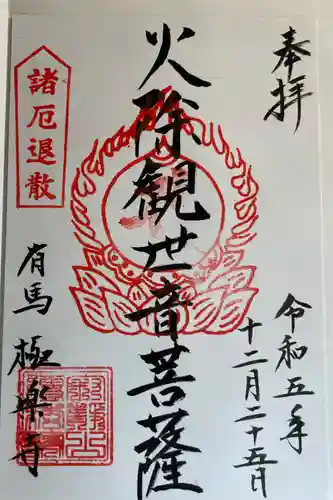 奉拝
令和五年
十二月二十五日
火除観世音菩薩
諸厄退散
有馬
極楽寺